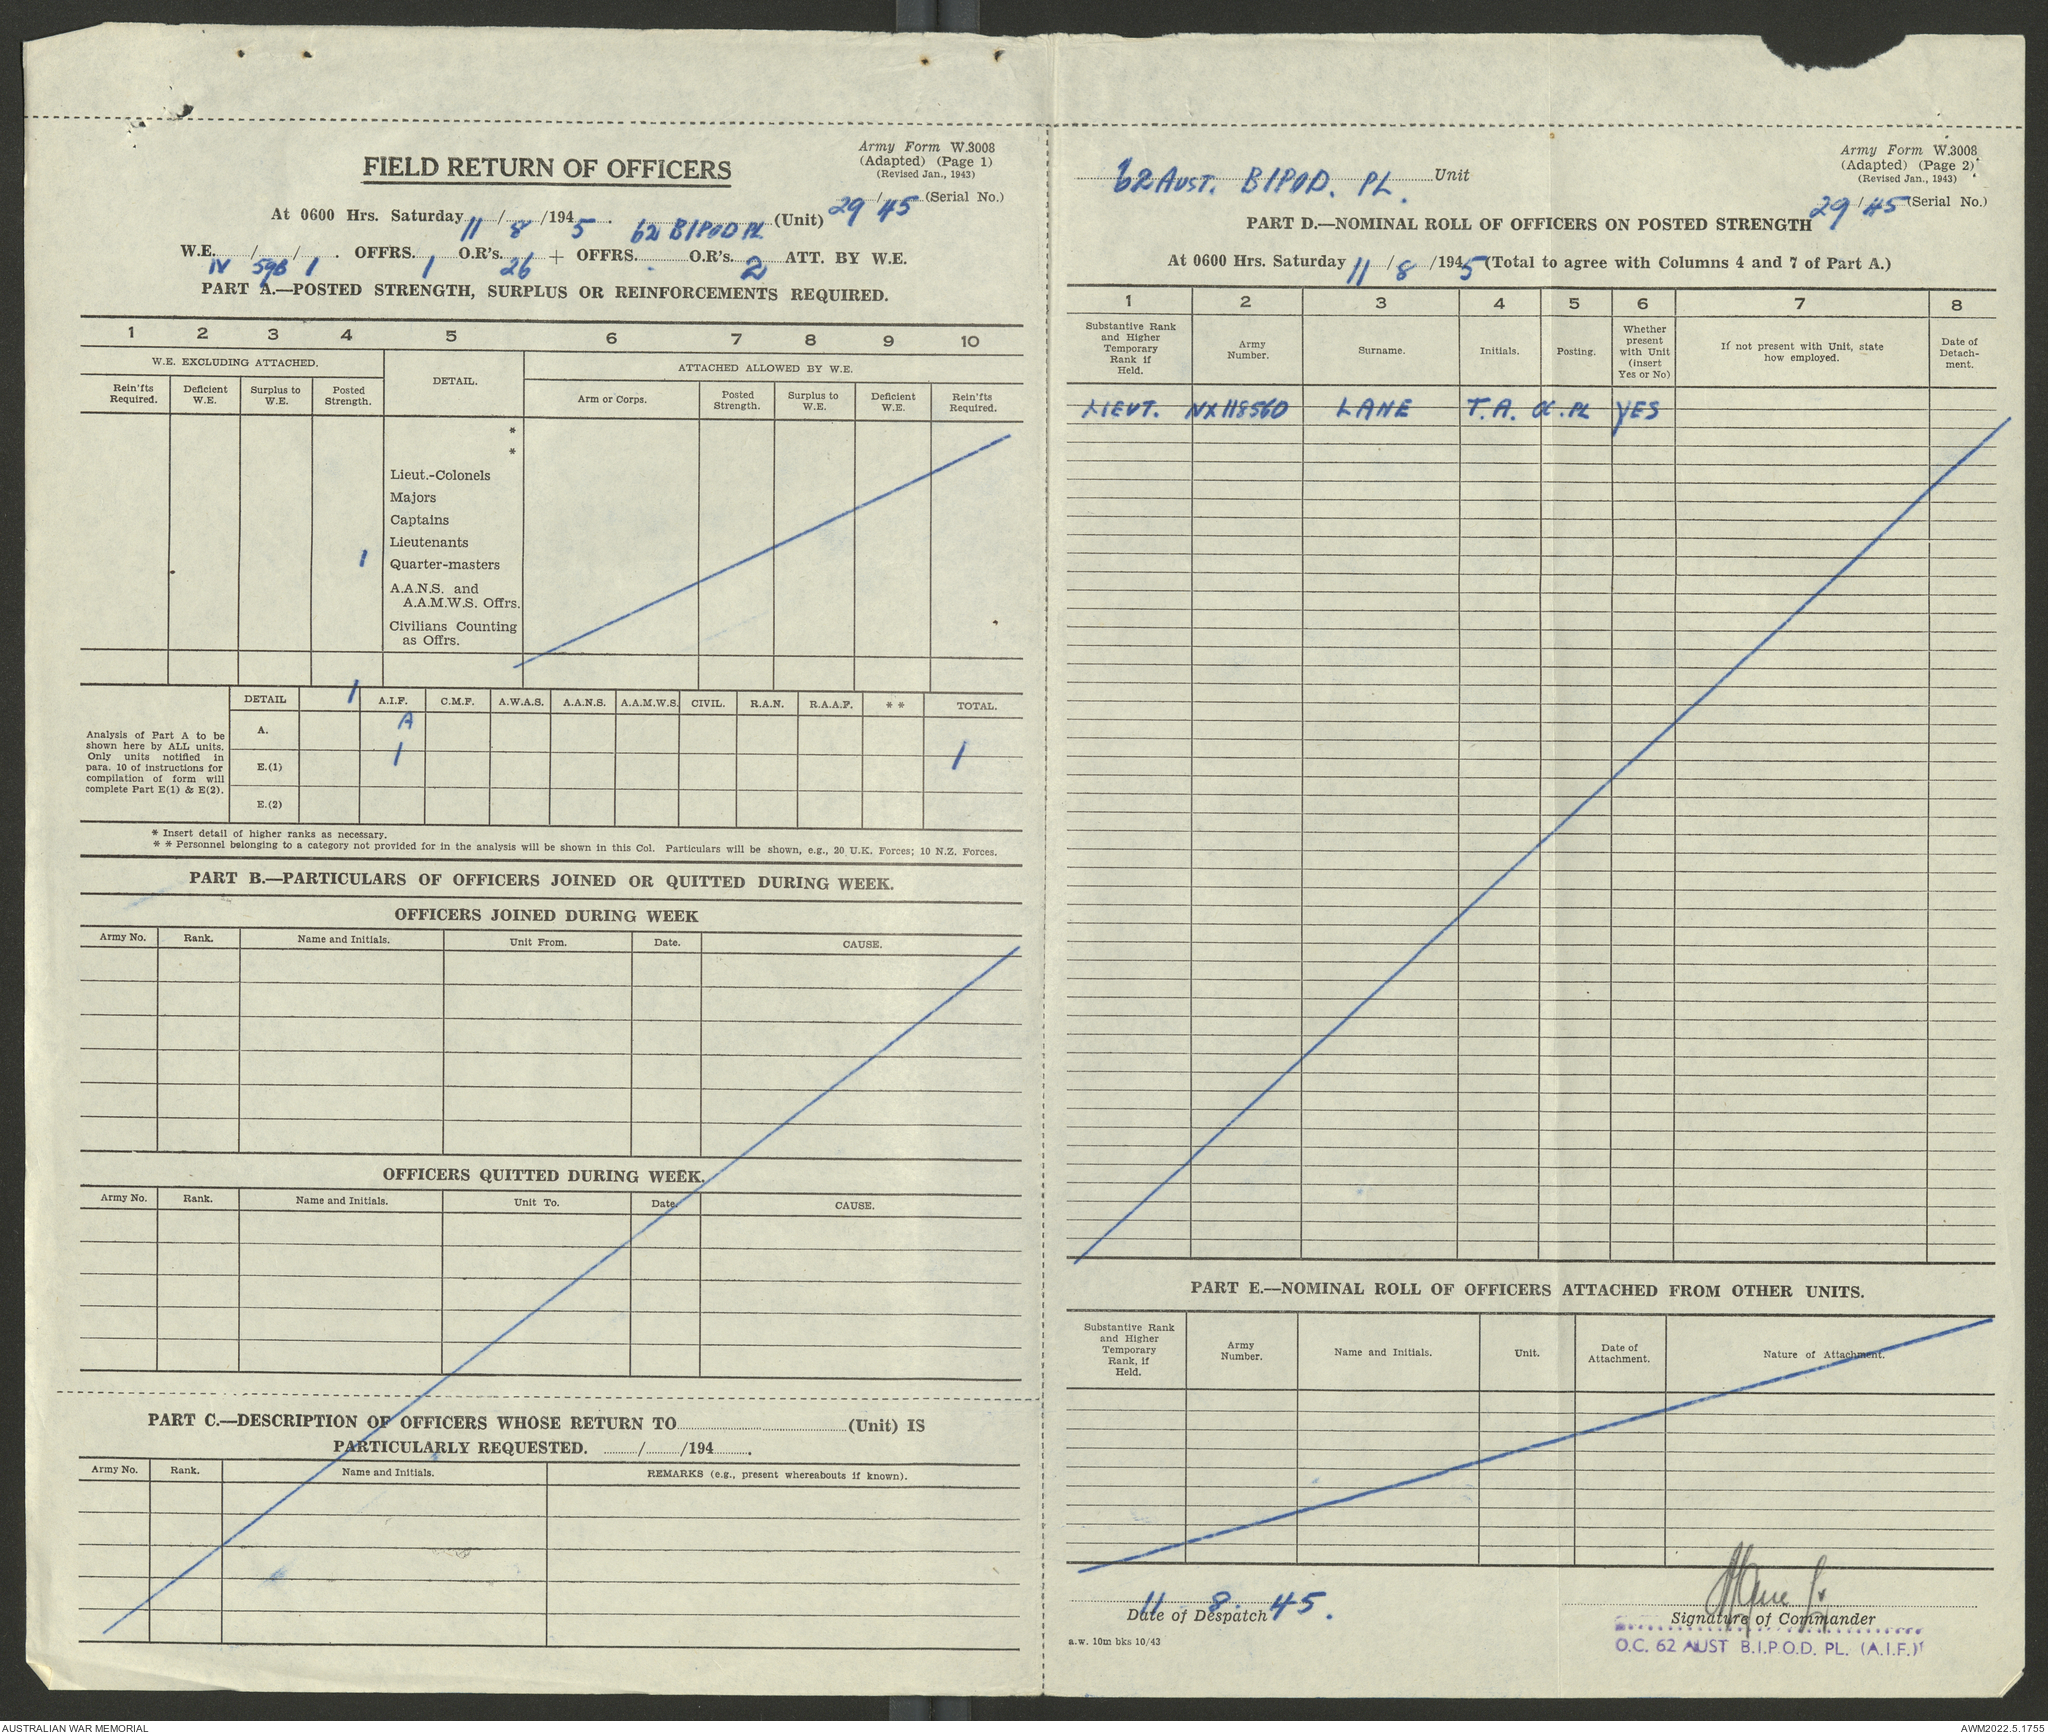 Army Form W.3008
(Adapted) (Page 1)
(Revised Jan., 1943)
FIELD RETURN OF OFFICERS
29/45 (Serial No.)
At 0600 Hrs. Saturday 11/8/1945. 62 BIPOD PL (Unit)
W.E. IV/59B/1. OFFRS. 1 O.R's. 26 + OFFRS. . O.R's. 2 ATT. BY W.E.
PART A.—POSTED STRENGTH, SURPLUS OR REINFORCEMENTS REQUIRED.
1 2 3 4 5 6 7 8 9 10
W.E. EXCLUDING ATTACHED. DETAIL. ATTACHED ALLOWED BY W.E.
Rein'fts Required. Deficient W.E. Surplus to W.E. Posted Strength. Arm or Corps. Posted Strength. Surplus to W.E. Deficient W.E. Rein'fts Required.
*
*
Lieut.-Colonels
Majors
Captains
Lieutenants
1 Quarter-masters
A.A.N.S. and
A.A.M.W.S. Offrs.
Civilians Counting
as Offrs.
1
DETAIL A.I.F. C.M.F. A.W.A.S. A.A.N.S. A.A.M.W.S. CIVIL. R.A.N. R.A.A.F. * * TOTAL.
Analysis of Part A to be
shown here by ALL units.
Only units notified in
para. 10 of instructions for
compilation of form will
complete Part E(1) & E(2).
A. A
E.(1) 1 1
E.(2)
* Insert detail of higher ranks as necessary.
* * Personnel belonging to a category not provided for in the analysis will be shown in this Col. Particulars will be shown, e.g., 20 U.K. Forces; 10 N.Z. Forces.
PART B.—PARTICULARS OF OFFICERS JOINED OR QUITTED DURING WEEK.
OFFICERS JOINED DURING WEEK
Army No. Rank. Name and Initials. Unit From. Date. CAUSE.
OFFICERS QUITTED DURING WEEK.
Army No. Rank. Name and Initials. Unit To. Date. CAUSE.
PART C.—DESCRIPTION OF OFFICERS WHOSE RETURN TO (Unit) IS
PARTICULARLY REQUESTED. / /194 .
Army No. Rank. Name and Initials. REMARKS (e.g., present whereabouts if known).
Army Form W.3008
(Adapted) (Page 2)
(Revised Jan., 1943)
62 AUST. BIPOD. PL. Unit
29/45 (Serial No.)
PART D.—NOMINAL ROLL OF OFFICERS ON POSTED STRENGTH
At 0600 Hrs. Saturday 11/8/1945 (Total to agree with Columns 4 and 7 of Part A.)
1 2 3 4 5 6 7 8
Substantive Rank and Higher Temporary Rank if Held. Army Number. Surname. Initials. Posting. Whether present with Unit (insert Yes or No) If not present with Unit, state how employed. Date of Detach-ment.
LIEUT. NX118560 LANE T.A. OC.PL YES
PART E.—NOMINAL ROLL OF OFFICERS ATTACHED FROM OTHER UNITS.
Substantive Rank and Higher Temporary Rank, if Held. Army Number. Name and Initials. Unit. Date of Attachment. Nature of Attachment.
11 . 8 . 45.
Date of Despatch
Signature of Commander
O.C. 62 AUST B.I.P.O.D. PL. (A.I.F.)
a.w. 10m bks 10/43
AUSTRALIAN WAR MEMORIAL
AWM2022.5.1755